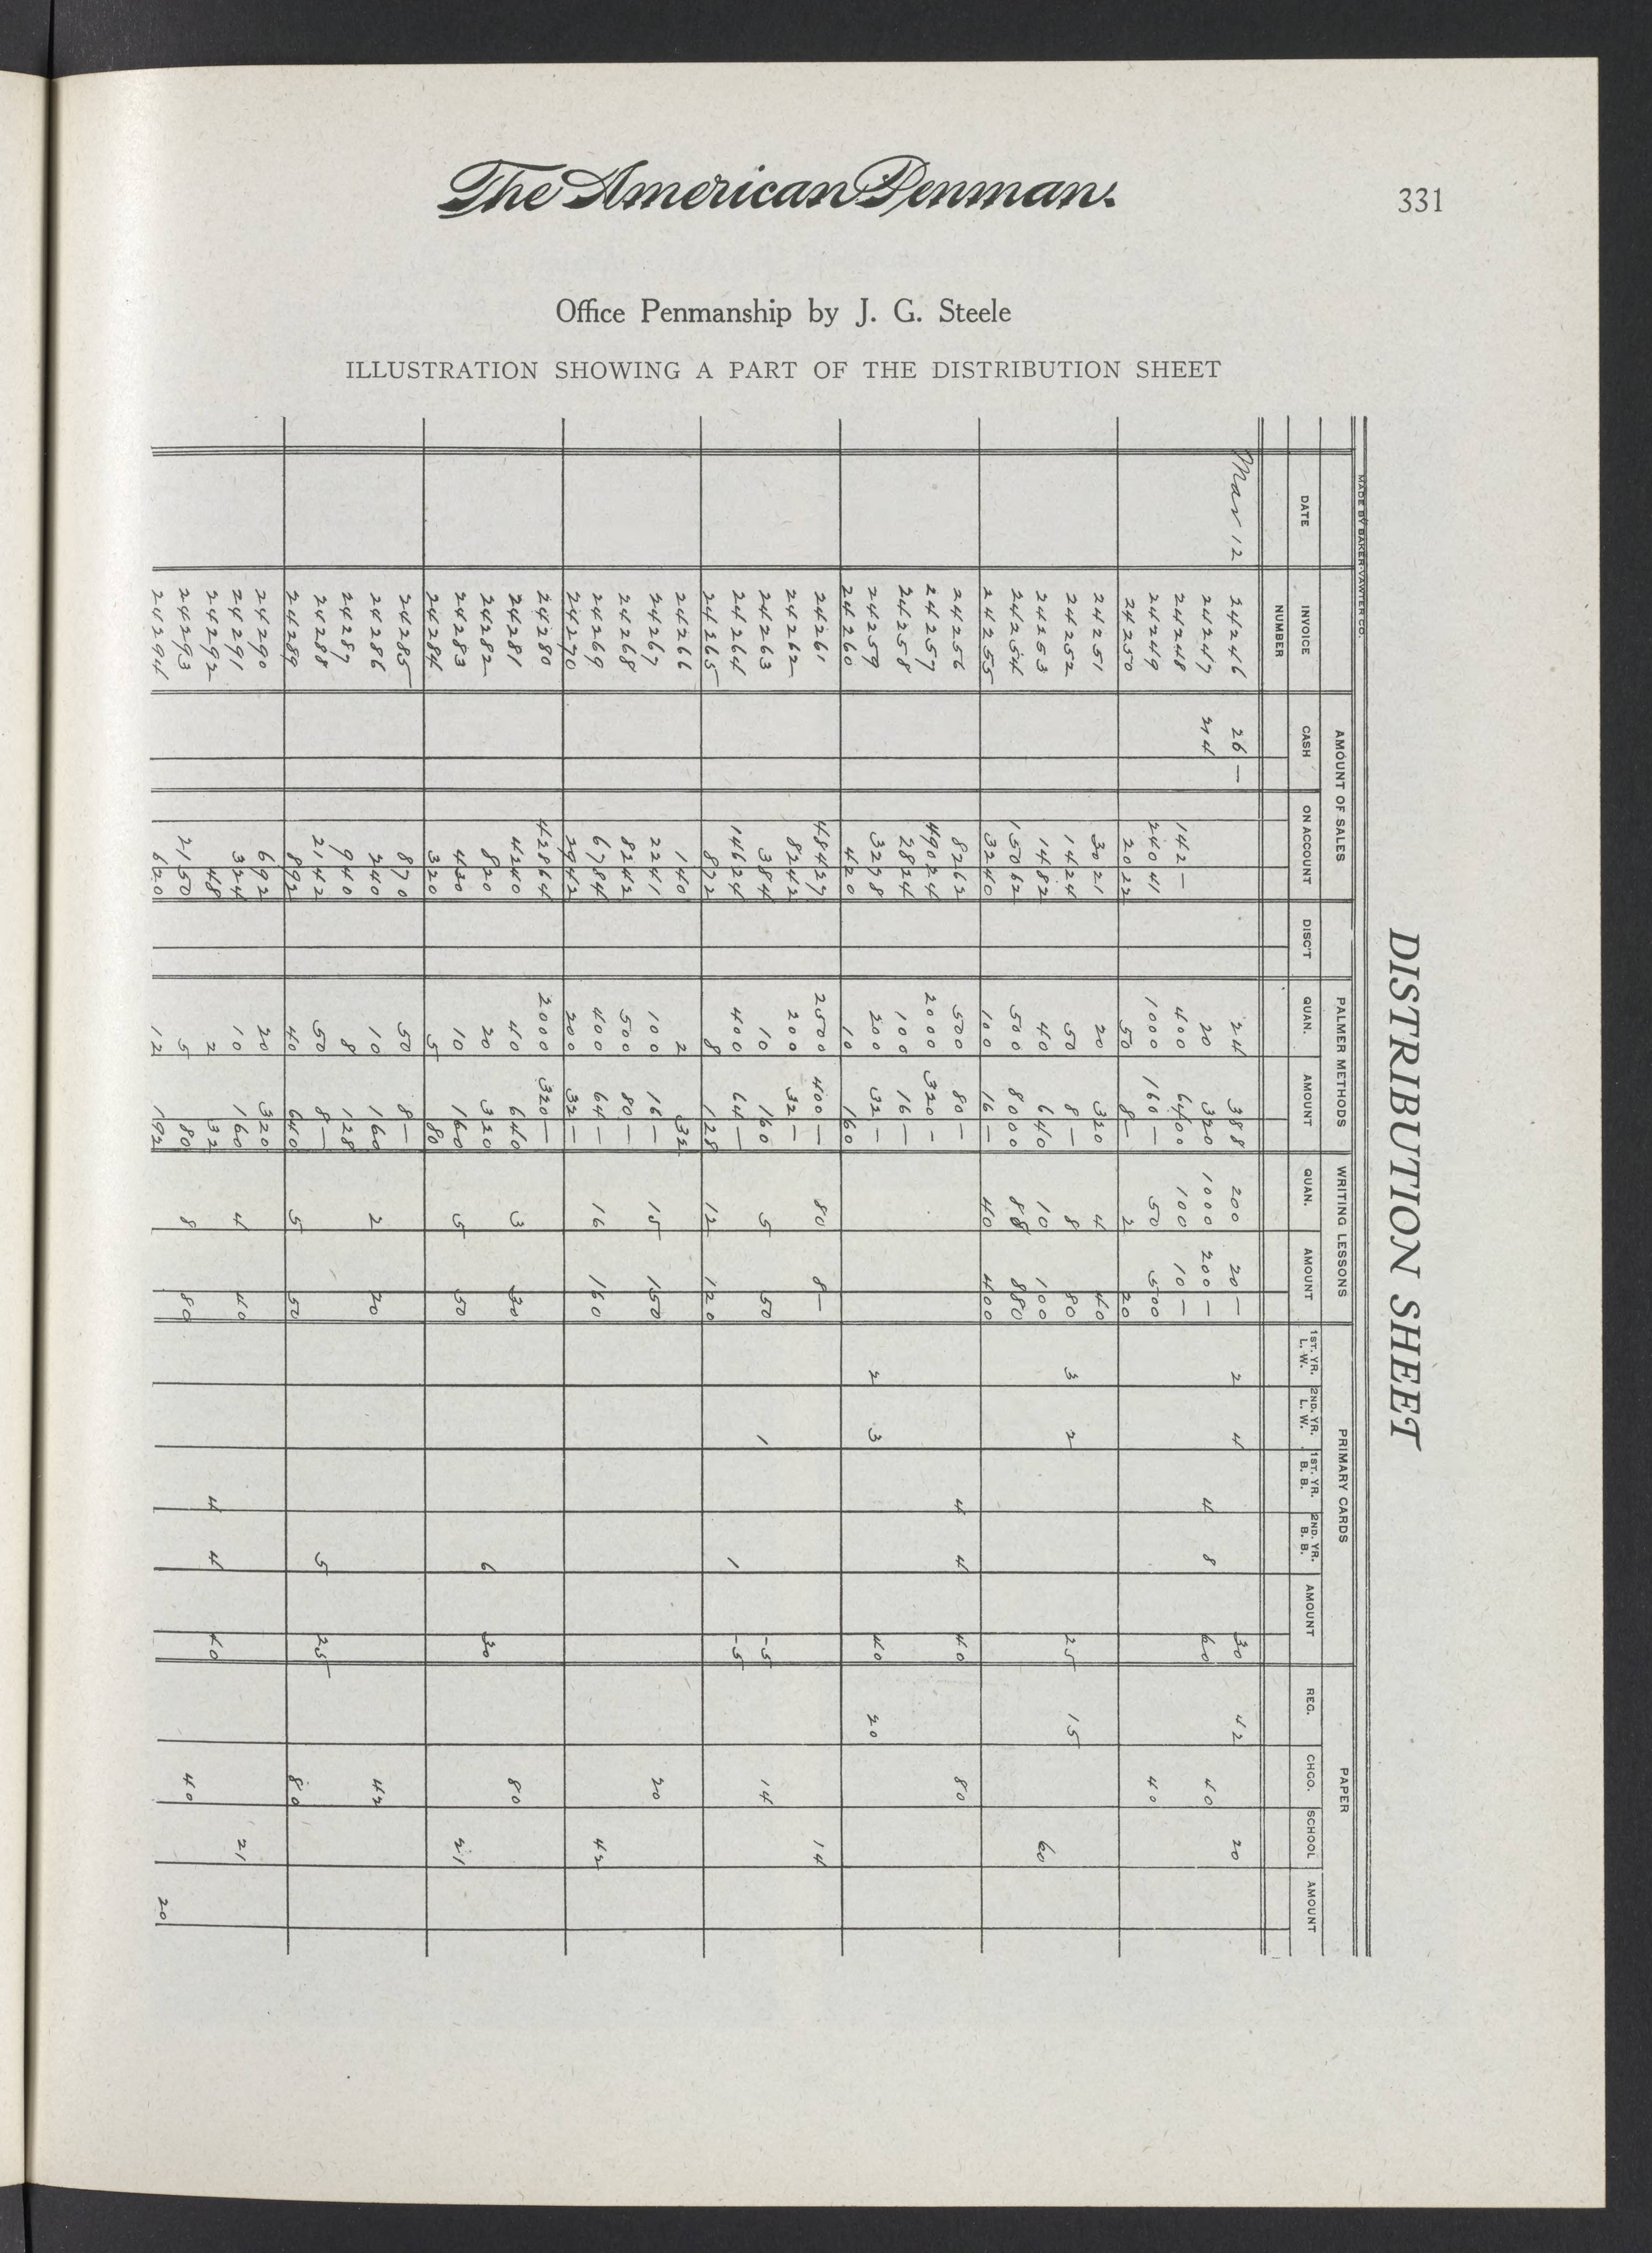 The American Penman.
331
Office Penmanship by J. G. Steele
ILLUSTRATION SHOWING A PART OF THE DISTRIBUTION SHEET
DISTRIBUTION SHEET
MADE BY BAKER-VAWTER CO.
AMOUNT OF SALES PALMER METHODS WRITING LESSONS PRIMARY CARDS PAPER
DATE INVOICE NUMBER CASH ON ACCOUNT DISC'T QUAN. AMOUNT QUAN. AMOUNT 1ST. YR. L. W. 2ND. YR. L. W. 1ST. YR. B. B. 2ND. YR. B. B. AMOUNT REG. CHGO. SCHOOL AMOUNT
Mar 12 24246 26 — 24 388 200 20 — 2 4 30 42 20
24247 274 20 320 1000 200 — 4 8 60 40
24248 142 — 400 6400 100 10 —
24249 240 41 1000 160 — 50 500 40
24250 20 22 50 8 — 2 20
24251 30 21 20 320 4 40
24252 14 24 50 8 — 8 80 3 2 25 15
24253 14 82 40 640 10 100 60
24254 150 62 500 8000 88 880
24255 32 40 100 16 — 40 400
24256 82 62 500 80 — 4 4 40 80
24257 490 24 2000 320 —
24258 28 24 100 16 —
24259 32 78 200 32 — 2 3 40 20
24260 4 20 10 160
24261 484 27 2500 400 — 80 8 — 14
24262 82 42 200 32 —
24263 3 84 10 160 5 50 1 -5 14
24264 146 24 400 64 — 1 -5
24265 8 72 8 128 12 120
24266 1 40 2 32
24267 22 41 100 16 — 15 150 20
24268 82 42 500 80 —
24269 67 84 400 64 — 16 160 42
24270 29 42 200 32 —
24280 428 64 2000 320 —
24281 42 40 40 640 3 30 80
24282 8 20 20 320 6 30
24283 4 30 10 160 5 50 21
24284 3 20 5 80
24285 8 70 50 8 —
24286 2 40 10 160 2 20 42
24287 9 40 8 128
24288 21 42 50 8 — 5 25
24289 8 92 40 640 5 50 80
24290 6 92 20 320
24291 3 24 10 160 4 40 21
24292 48 2 32 4 4 40
24293 21 50 5 80 8 80 40
24294 6 20 12 192 20